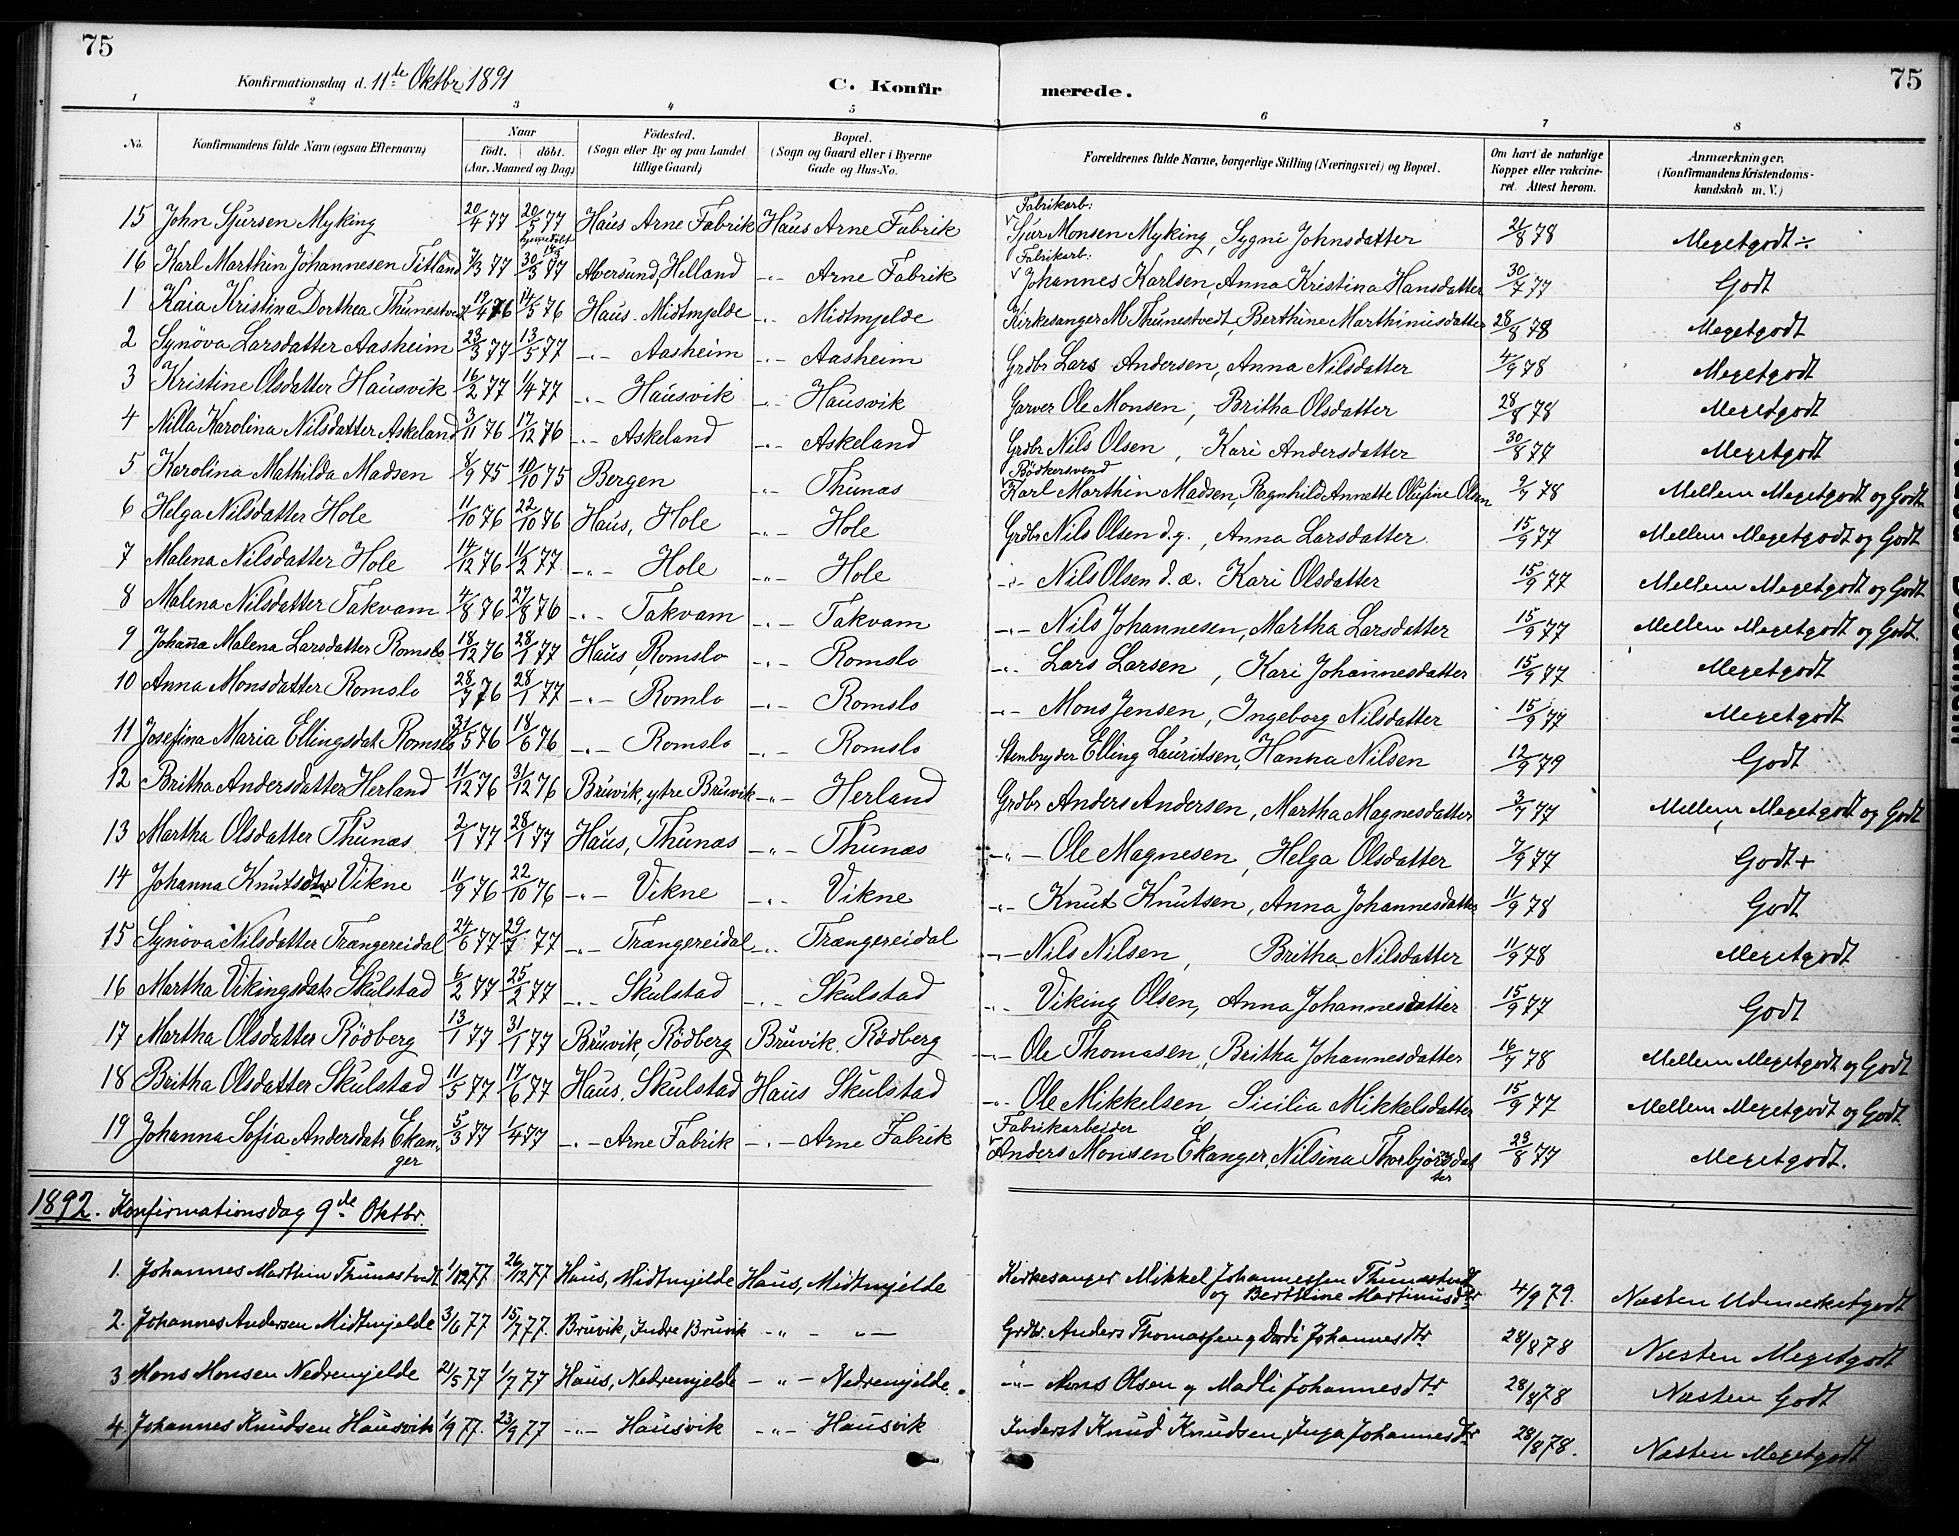 75
75
Konfirmationsdag d. 11te Oktbr 1891
C. Konfir merede.
1 2 3 4 5 6 7 8
No. Konfirmandens fulde Navn (ogsaa Efternavn) Naar födt. döbt. (Aar, Maaned og Dag) Födested. (Sogn eller By og paa Landet tillige Gaard) Bopæl. (Sogn og Gaard eller i Byerne Gade og Hus-No. Forældrenes fulde Navne, borgerlige Stilling (Næringsvei) og Bopæl. Om havt de naturlige Kopper eller vakcineret. Attest herom. Anmærkninger. (Konfirmandens Kristendomskundskab m. V.)
15 John Sjursen Myking 20/4 77 20/5 77 Haus Arne Fabrik Haus Arne Fabrik Fabrikarb: Sjur Monsen Myking, Sygni Johnsdatter 21/8 78 Megetgodt ÷
16 Karl Marthin Johannesen Titland 3/3 77 30/3 77 Alversund, Helland -"- Arne Fabrik Fabrikarb: Johannes Karlsen, Anna Kristina Hansdatter 30/7 77 Godt
1 Kaia Kristina Dorthea Thunestvedt 19/4 76 14/5 76 Haus. Midtmjelde -"- Midtmjelde Kirkesanger M. Thunestvedt, Berthine Marthinusdatter 28/8 78 Megetgodt
2 Synöva Larsdatter Aasheim 23/3 77 13/5 77 -"- Aasheim -"- Aasheim Grdbr Lars Andersen, Anna Nilsdatter 4/9 78 Megetgodt
3 Kristine Olsdatter Hausvik 16/2 77 1/4 77 -"- Hausvik -"- Hausvik Garver Ole Monsen, Britha Olsdatter 28/8 78 Megetgodt
4 Nilla Karolina Nilsdatter Askeland 3/11 76 17/12 76 -"- Askeland -"- Askeland Grdbr Nils Olsen, Kari Andersdatter 30/8 77 Megetgodt
5 Karolina Mathilda Madsen 8/9 75 10/10 75 Bergen -"- Thunæs Bödkersvend Karl Marthin Madsen, Ragnhild Annette Olufine Olsen 2/7 78 Mellem Megetgodt og Godt
6 Helga Nilsdatter Hole 11/10 76 22/10 76 Haus, Hole -"- Hole Grdbr Nils Olsen d.y., Anna Larsdatter 15/9 77 Mellem Megetgodt og Godt
7 Malena Nilsdatter Hole 14/12 76 11/2 77 -"- Hole -"- Hole -"- Nils Olsen d.æ. Kari Olsdatter 15/9 77 Mellem Megetgodt og Godt
8 Malena Nilsdatter Takvam 4/8 76 27/8 76 -"- Takvam -"- Takvam -"- Nils Johannesen, Martha Larsdatter 15/9 77 Mellem Megetgodt og Godt.
9 Johanna Malena Larsdatter Romslo 18/12 76 28/1 77 Haus, Romslo -"- Romslo -"- Lars Larsen, Kari Johannesdatter 15/9 77 Megetgodt
10 Anna Monsdatter Romslo 28/7 76 28/1 77 -"- Romlo -"- Romslo -"- Mons Jensen, Ingeborg Nilsdatter 15/9 77 Megetgodt
11 Josefina Maria Ellingsdat Romslo 31/5 76 18/6 76 -"- Romslo -"- Romslo Stenbryder Elling Lauritsen, Hanna Nilsen 12/9 79 Godt
12 Britha Andersdatter Herland 11/12 76 31/12 76 Bruvik, ytre Bruvik -"- Herland Grdbr Anders Andersen, Martha Magnesdatter 3/7 77 Mellem Megetgodt og Godt
13 Martha Olsdatter Thunæs 2/1 77 28/1 77 Haus, Thunæs -"- Thunæs -"- Ole Magnesen, Helga Olsdatter 7/9 77 Godt +
14 Johanna Knutsdtr Vikne 11/9 76 22/10 76 -"- Vikne -"- Vikne -"- Knut Knutsen, Anna Johannesdatter 11/9 78 Godt
15 Synöva Nilsdatter Trængereidal 24/6 77 29/7 77 -"- Trængereidal -"- Trængereidal -"- Nils Nilsen, Britha Nilsdatter 11/9 78 Megetgodt
16 Martha Vikingsdatr Skulstad 6/2 77 25/2 77 -"- Skulstad -"- Skulstad -"- Viking Olsen, Anna Johannesdatter 15/9 77 Godt
17 Martha Olsdatter Rödberg 13/1 77 31/1 77 Bruvik, Rödberg Bruvik. Rödberg -"- Ole Thomasen, Britha Johannesdatter 16/7 78 Mellem Megetgodt og Godt
18 Britha Olsdatter Skulstad 11/5 77 17/6 77 Haus. Skulstad Haus Skulstad -"- Ole Mikkelsen, Sicilia Mikkelsdatter 15/9 77 Mellem Megetgodt og Godt.
19 Johanna Sofia Andersdatr Ekanger 5/3 77 1/4 77 -"- Arne Fabrik -"- Arne Fabrik Fabrikarbeider Anders Monsen Ekanger, Nilsina Thorbjörnsdatter 23/8 77 Megetgodt.
1892. Konfirmationsdag 9de Oktbr.
1. Johannes Marthin Thunæstvedt 1/12 77 26/12 77 Haus, Midtmjelde Haus, Midtmjelde Kirkesanger Mikkel Johannessen Thunæstvedt og Berthine Martinusdtr 4/9 79. Næsten Udmærketgodt
2. Johannes Andersen Midtmjelde 3/6 77 15/7 77. Bruvik, Indre Bruvik -"- "- Grdbr. Anders Thomassen og Dordi Johannesdtr 28/8 78 Næsten Megetgodt
3 Mons Monsen Nedremjelde 21/5 77 1/7 77 Haus, Nedremjelde -"- Nedremjelde. -"- Mons Olsen og Madli Johannesdtr 28/8 78 Næsten Godt
4. Johannes Knudsen Hausvik 1/9 77. 23/9 77 -"- Hausvik -"- Hausvik Inderst Knud Knudsen, Inga Johannesdtr 28/8 78. Næsten Megetgodt